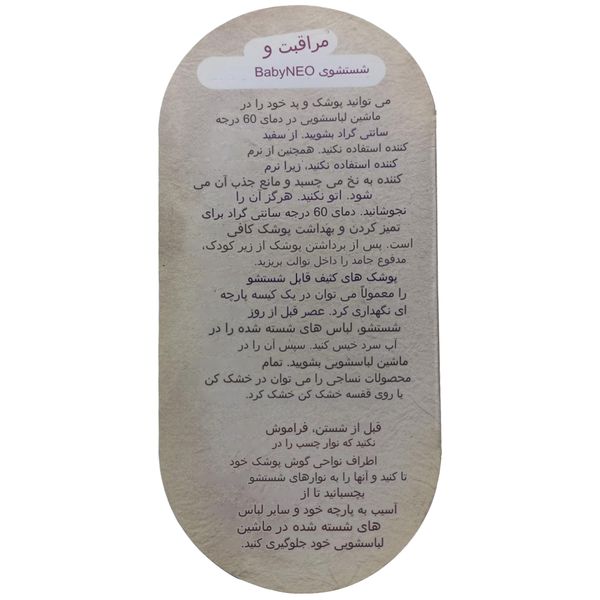 مراقبت و
شستشوی BabyNEO
می توانید پوشک و پد خود را در
ماشین لباسشویی در دمای 60 درجه
سانتی گراد بشویید. از سفید
کننده استفاده نکنید. همچنین از نرم
کننده استفاده نکنید، زیرا نرم
کننده به نخ می چسبد و مانع جذب آن می
شود. اتو نکنید. هرگز آن را
نجوشانید. دمای 60 درجه سانتی گراد برای
تمیز کردن و بهداشت پوشک کافی
است. پس از برداشتن پوشک از زیر کودک،
مدفوع جامد را داخل توالت بریزید.
پوشک های کثیف قابل شستشو
را معمولاً می توان در یک کیسه پارچه
ای نگهداری کرد. عصر قبل از روز
شستشو، لباس های شسته شده را در
آب سرد خیس کنید. سپس آن را در
ماشین لباسشویی بشویید. تمام
محصولات نساجی را می توان در خشک کن
یا روی قفسه خشک کن خشک کرد.
قبل از شستن، فراموش
نکنید که نوار چسب را در
اطراف نواحی گوش پوشک خود
تا کنید و آنها را به نوارهای شستشو
بچسبانید تا از
آسیب به پارچه خود و سایر لباس
های شسته شده در ماشین
لباسشویی خود جلوگیری کنید.